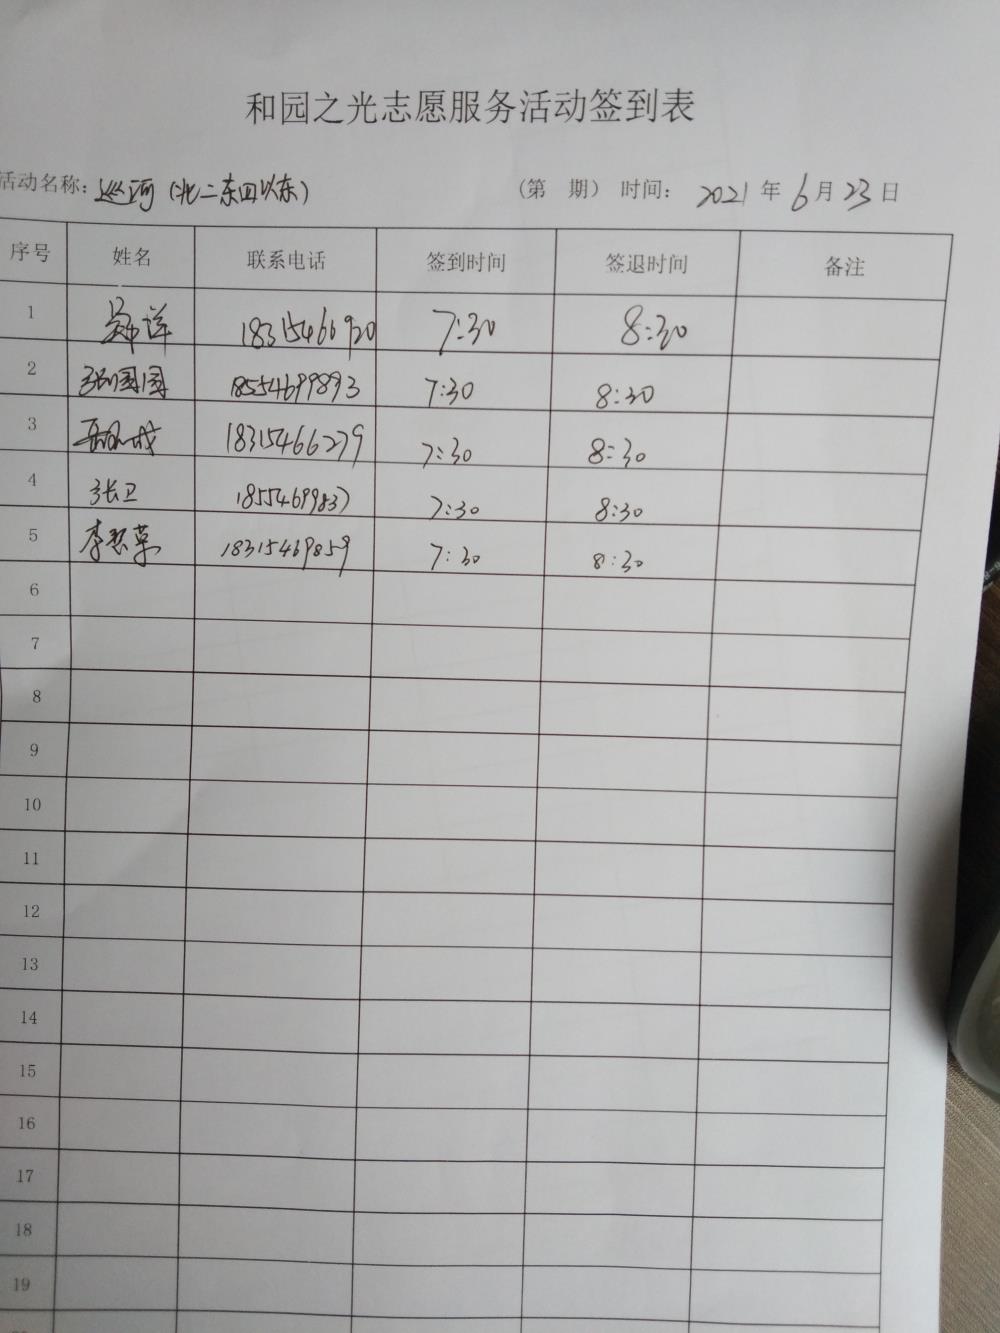 和园之光志愿服务活动签到表
活动名称：巡河（北二东四以东） （第 期） 时间： 2021 年 6 月 23 日
序号 姓名 联系电话 签到时间 签退时间 备注
1 18315466920 7:30 8:30
2 张园园 18554699893 7:30 8:30
3 18315466279 7:30 8:30
4 张卫 18554699837 7:30 8:30
5 18315469859 7:30 8:30
6
7
8
9
10
11
12
13
14
15
16
17
18
19